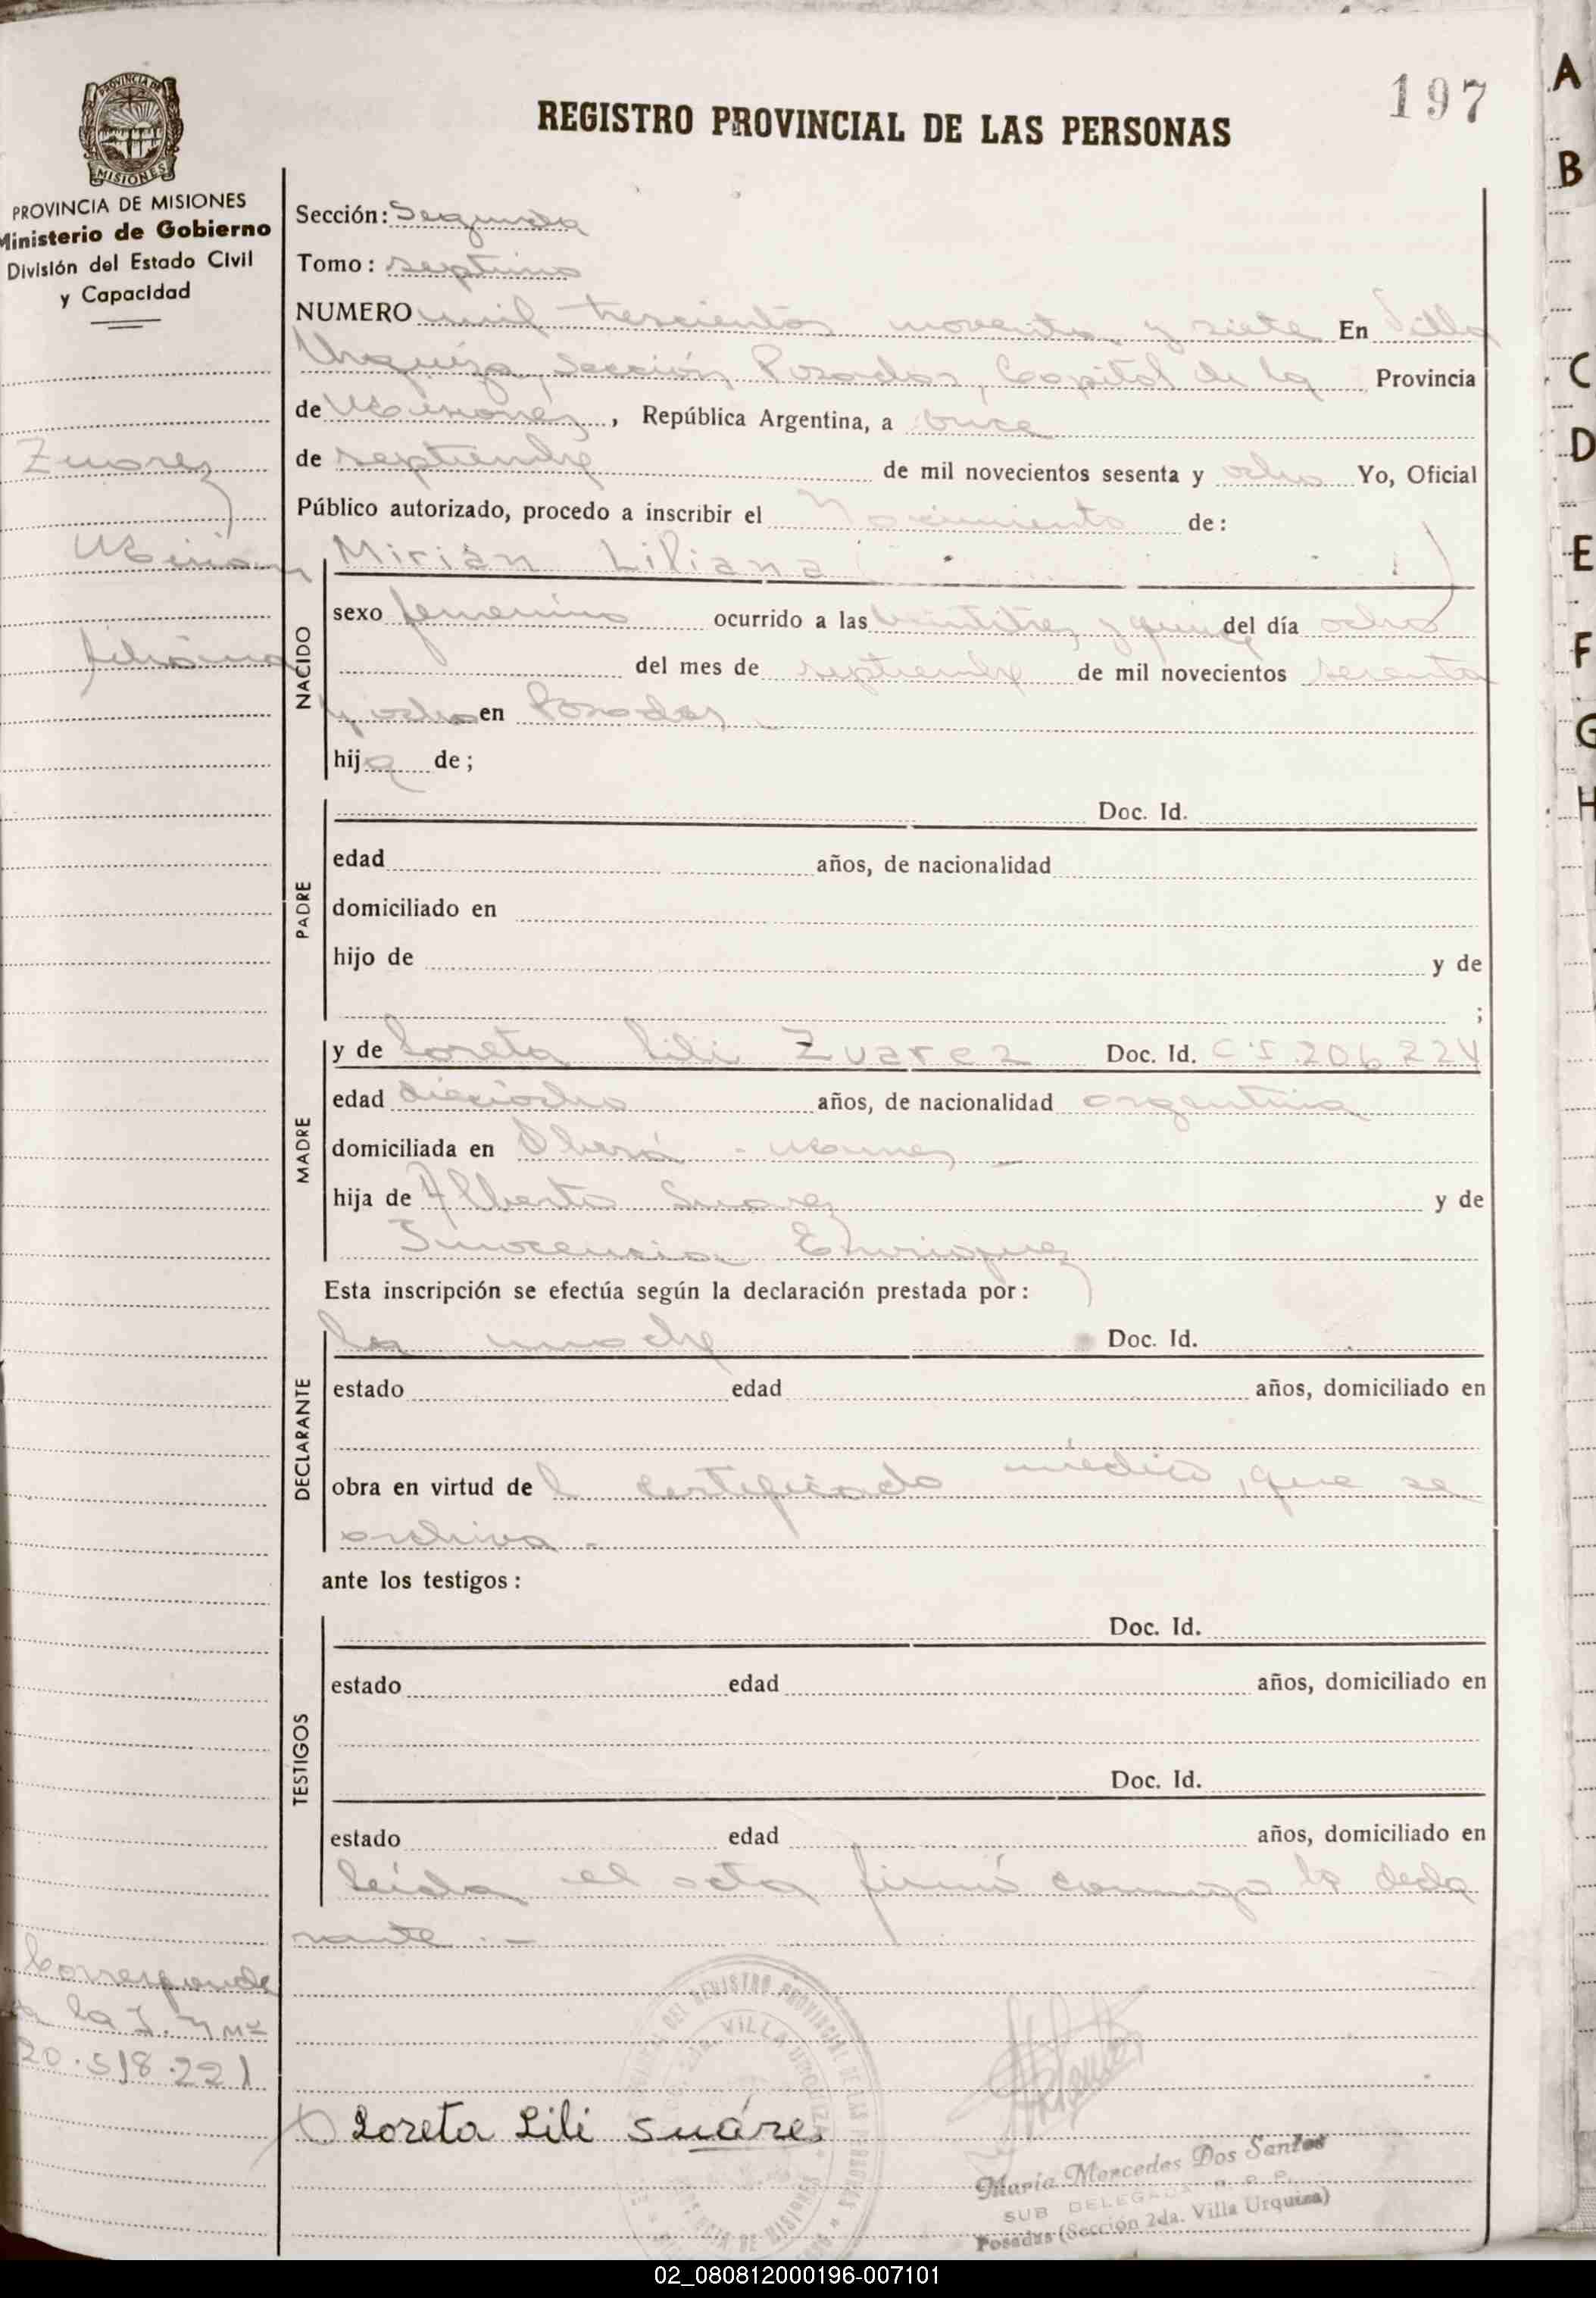 197
REGISTRO PROVINCIAL DE LAS PERSONAS
PROVINCIA DE MISIONES
PROVINCIA DE MISIONES
Ministerio de Gobierno
División del Estado Civil
y Capacidad
Zuarez
Mirian
Liliana
Sección: Segunda
Tomo: septimo
NUMERO mil trescientos noventa y siete En Villa
Urquiza, Sección, Posadas, Capital de la Provincia
de Misiones, República Argentina, a once
de septiembre de mil novecientos sesenta y ocho Yo, Oficial
Público autorizado, procedo a inscribir el Nacimiento de:
NACIDO
Mirián Liliana
sexo femenino ocurrido a las veintitres y quince del día ocho
del mes de septiembre de mil novecientos sesenta
y ocho en Posadas
hija de;
PADRE
Doc. Id.
edad años, de nacionalidad
domiciliado en
hijo de y de
;
MADRE
y de Loreta Lili Zuarez Doc. Id. C.I. 206.224
edad dieciocho años, de nacionalidad argentina
domiciliada en Oberá - Misiones
hija de Alberto Suarez y de
Inocencia Enriquez
Esta inscripción se efectúa según la declaración prestada por:
DECLARANTE
la madre Doc. Id.
estado edad años, domiciliado en
obra en virtud del certificado médico, que se
archiva.-
ante los testigos:
TESTIGOS
Doc. Id.
estado edad años, domiciliado en
Doc. Id.
estado edad años, domiciliado en
leída el acta firmó conmigo la decla
rante.-
Corresponde
a la I. M Nº
20.518.221
Loreta Lili Suáres
María Mercedes Dos Santos
SUB DELEGADA R. P. P.
Posadas (Sección 2da. Villa Urquiza)
A
B
C
D
E
F
G
H
02_080812000196-007101